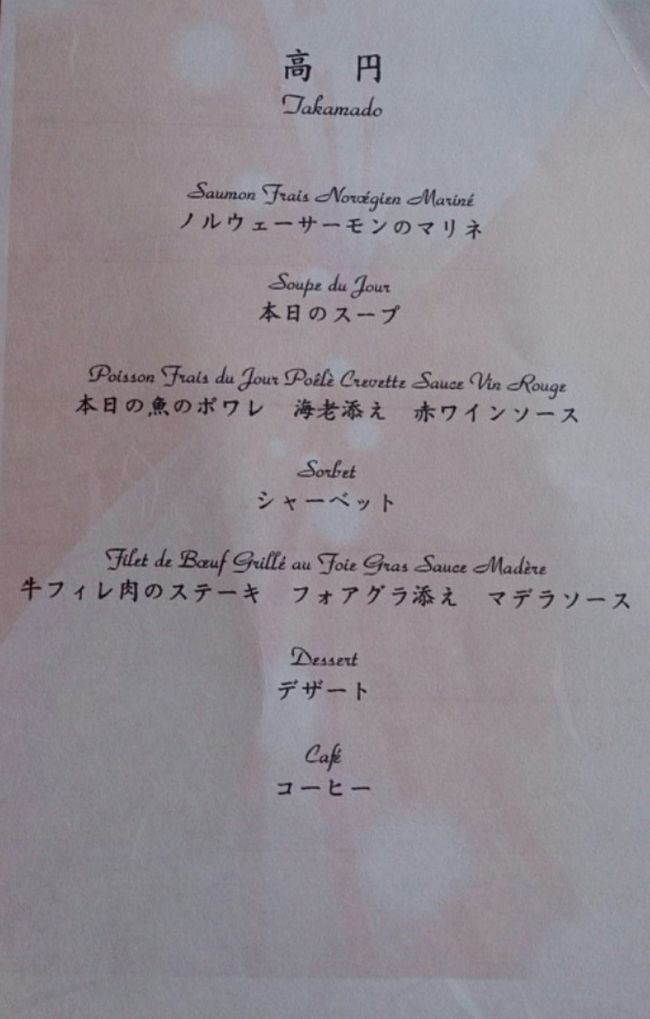 高 円
Takamado
Saumon Frais Norvégien Mariné
ノルウェーサーモンのマリネ
Soupe du Jour
本日のスープ
Poisson Frais du Jour Poêlè Crevette Sauce Vin Rouge
本日の魚のポワレ 海老添え 赤ワインソース
Sorbet
シャーベット
Filet de Bœuf Grillé au Foie Gras Sauce Madère
牛フィレ肉のステーキ フォアグラ添え マデラソース
Dessert
デザート
Café
コーヒー